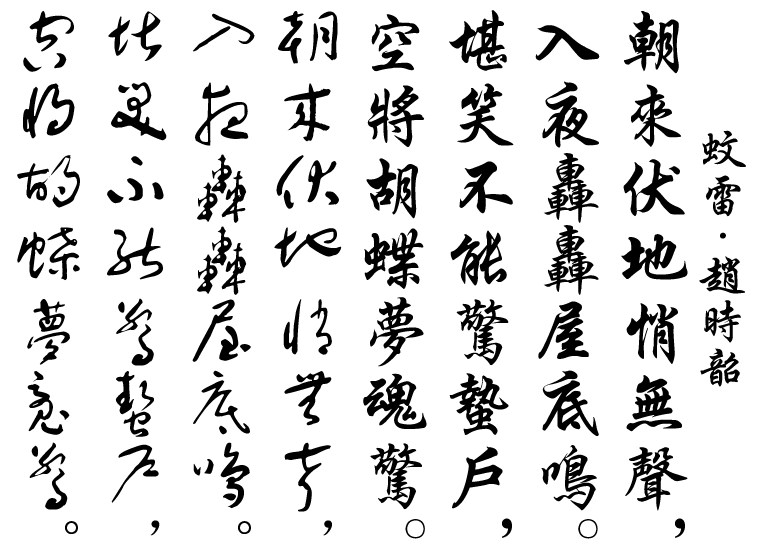 蚊雷·趙時韶
朝來伏地悄無聲，
入夜轟轟屋底鳴。
堪笑不能驚蟄戶，
空將胡蝶夢魂驚。
朝來伏地悄無聲，
入夜轟轟屋底鳴。
堪笑不能驚蟄戶，
空將胡蝶夢魂驚。